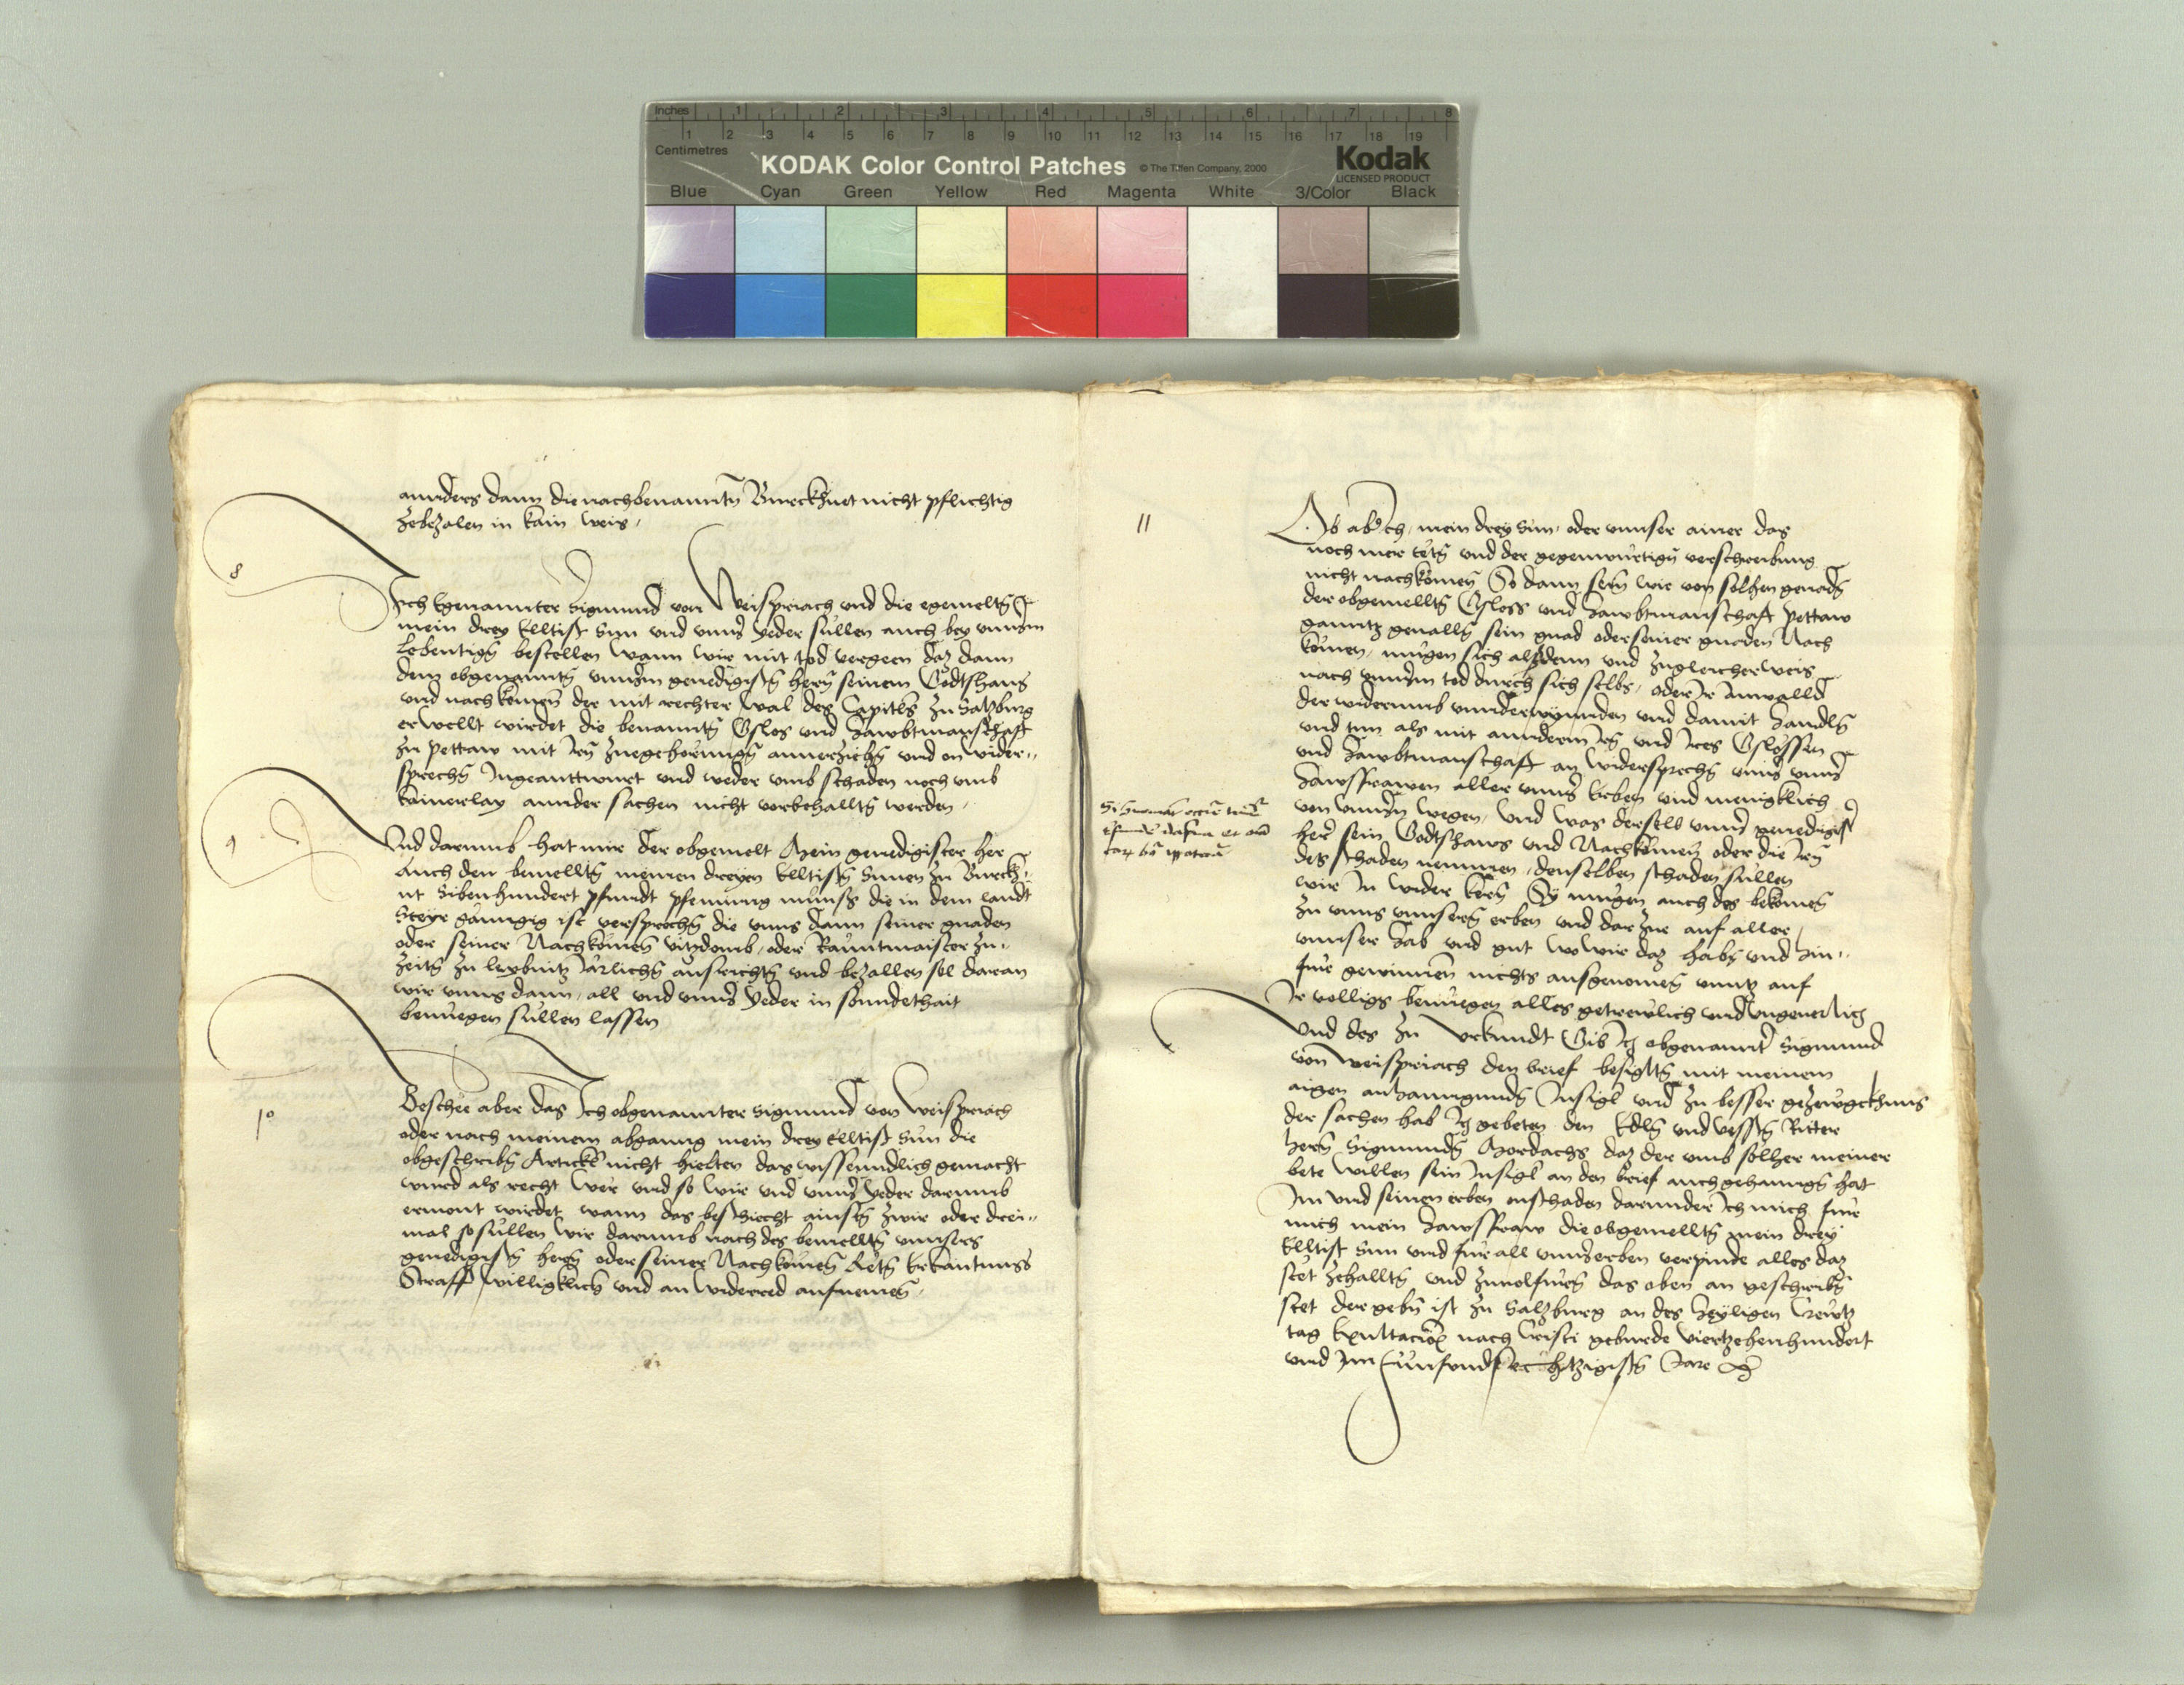 Inches 1 2 3 4 5 6 7 8
Centimetres 1 2 3 4 5 6 7 8 9 10 11 12 13 14 15 16 17 18 19
KODAK Color Control Patches © The Tiffen Company, 2000 Kodak
LICENSED PRODUCT
Blue Cyan Green Yellow Red Magenta White 3/Color Black
annders dann die nachbenanntn Burckhuet nicht pflichtig
zebezalen in kain weis
8
Ich Egenannter Sigmund von Weispriach und die egemeltn
mein drey Elltist Sun und unnser yeder sullen auch bey unnserm
Lebentign bestellen wann wir mit tod vergeen daz dann
dem obgenanntn unnserm genedigistn herrn seinem Godtshaus
und nachkomen der mit rechter wal des Capitls zu Saltzburg
erwellt wirdet die benanntn Gslos und Hawbtmanschafft
zu Pettaw mit Irn zuegehörungn unverzichn und on wider-
sprechn Ingeanttwurt und weder umb schaden noch umb
kainerlay annder sachen nicht vorbehalltn werden
9
Und darumb hat mir der obgemelt Mein genedigister her
Auch den bemelltn meinen dreyen Elltistn Sunen zu Burckh-
ut Sibenhundert pfundt pfenning munss die in dem Landt
Steyr gänngig ist versprochn die unns dann seiner gnaden
oder seiner Nachkomen Vitzdomb oder Rauntmaister zu-
zeitn zu Leybnitz Järlichn ausrichtn und bezallen sol daran
wir unns dann all und unnser yeder in sonnderhait
benuegen sullen lassen
10
Beschee aber das Ich obgenannter Sigmund von Weispriach
oder nach meinem abganng mein drey elltist Sun die
obgeschribn Artickl nicht hielten das wissenndlich gemacht
wurd als recht wer und so wir und unnser yeder darumb
ermont wirdet wann das beschiecht ainstn zwir oder drei-
mal so sullen wir darumb nach des bemelltn unnsers
genedigistn herrn oder seiner Nachkomen Rätn Erkantnuss
Straff willigklich und an widerred aufnemen
11
Ob aber Ich mein drey Sun oder unnser ainer das
noch mer tetn und der gegenwurtign verschreibung
nicht nachkomen So dann sein wir von solhen genadn
der obgemelltn Gsloss und Hawbtmanschafft Pettaw
ganntz gevalln sein gnad oder seiner gnaden Nach
komen mugen sich alsdenn und zugleicherweis
nach unnserm tod durch sich selbs oder Ir Anwalld
der widerumb unnderwynnden und damit handln
und tun als mit anndern Irn und Ires Gslossen
und Hawbtmanschafft an widersprechn unns unnser
Hawsfrawen aller unnser Erben und menigklich
von unnsern wegen und was derselb unnser genedigist
her sein Godtshaws und Nachkomen oder die Irn
des schaden nemmen denselben schaden sullen
wir In wider kern Sy mugen auch des bekomen
zu unns unnsern erben und dar zue auf aller
unnser hab und gut wo wir daz habn und hin-
fur gewinnen nichts ausgenomen unntz auf
Ir volligs benuegen alles getrewlich und ungeverlich
Und des zu Urkundt Gib Ich obgenannter Sigmund
von Weispriach den brief besigltn mit meinem
aigen anhanngunden Insigl und zu besser gezewgkhnus
der sachen hab Ich gebeten den Edln und Vesstn Ritter
herrn Sigmundn Mordachs daz der umb solher meiner
bete willen sein Insigl an den brief auch gehanngn hat
Im und seinen erben onschaden darunder Ich mich fur
mich mein Hawsfraw die obgemelltn mein drey
Elltist Sun und fur all unnser erben verpinde alles daz
stet zehalltn und zuvolfurn das oben an geschribn
stet der gebn ist zu Saltzburg an des Heyligen Crewtz
tag Exultacionis nach Cristi geburde Viertzehenhundert
und Im Funfundsechtzigistn Jare